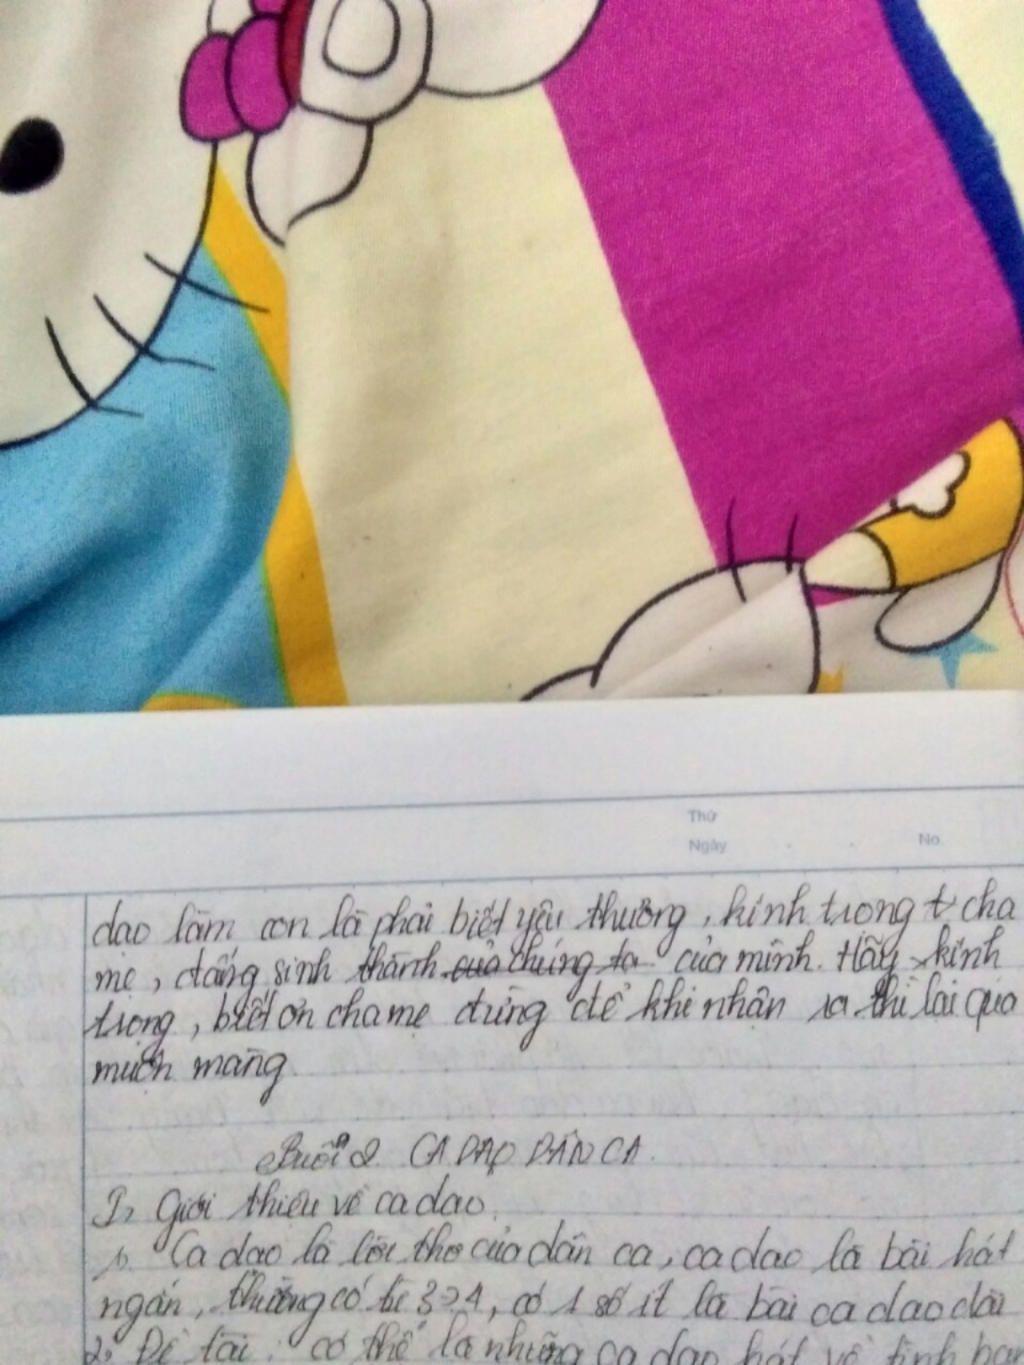 Thứ
Ngày No.
đạo làm con là phải biết yêu thương, kính trọng cha
mẹ, đấng sinh thành của chúng ta của mình. Hãy kính
trọng, biết ơn cha mẹ đừng để khi nhận ra thì lại quá
muộn màng.
Buổi 2. CA DAO DÂN CA.
I, Giới thiệu về ca dao.
1. Ca dao là lời thơ của dân ca, ca dao là bài hát
ngắn, thường có từ 3->4, có 1 số ít là bài ca dao dài
2. Đề tài: có thể là những ca dao hát về tình